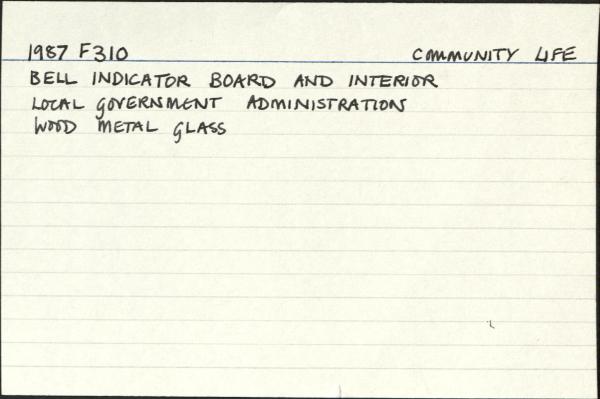 1987 F310 COMMUNITY LIFE
BELL INDICATOR BOARD AND INTERIOR
LOCAL GOVERNMENT ADMINISTRATION
WOOD METAL GLASS